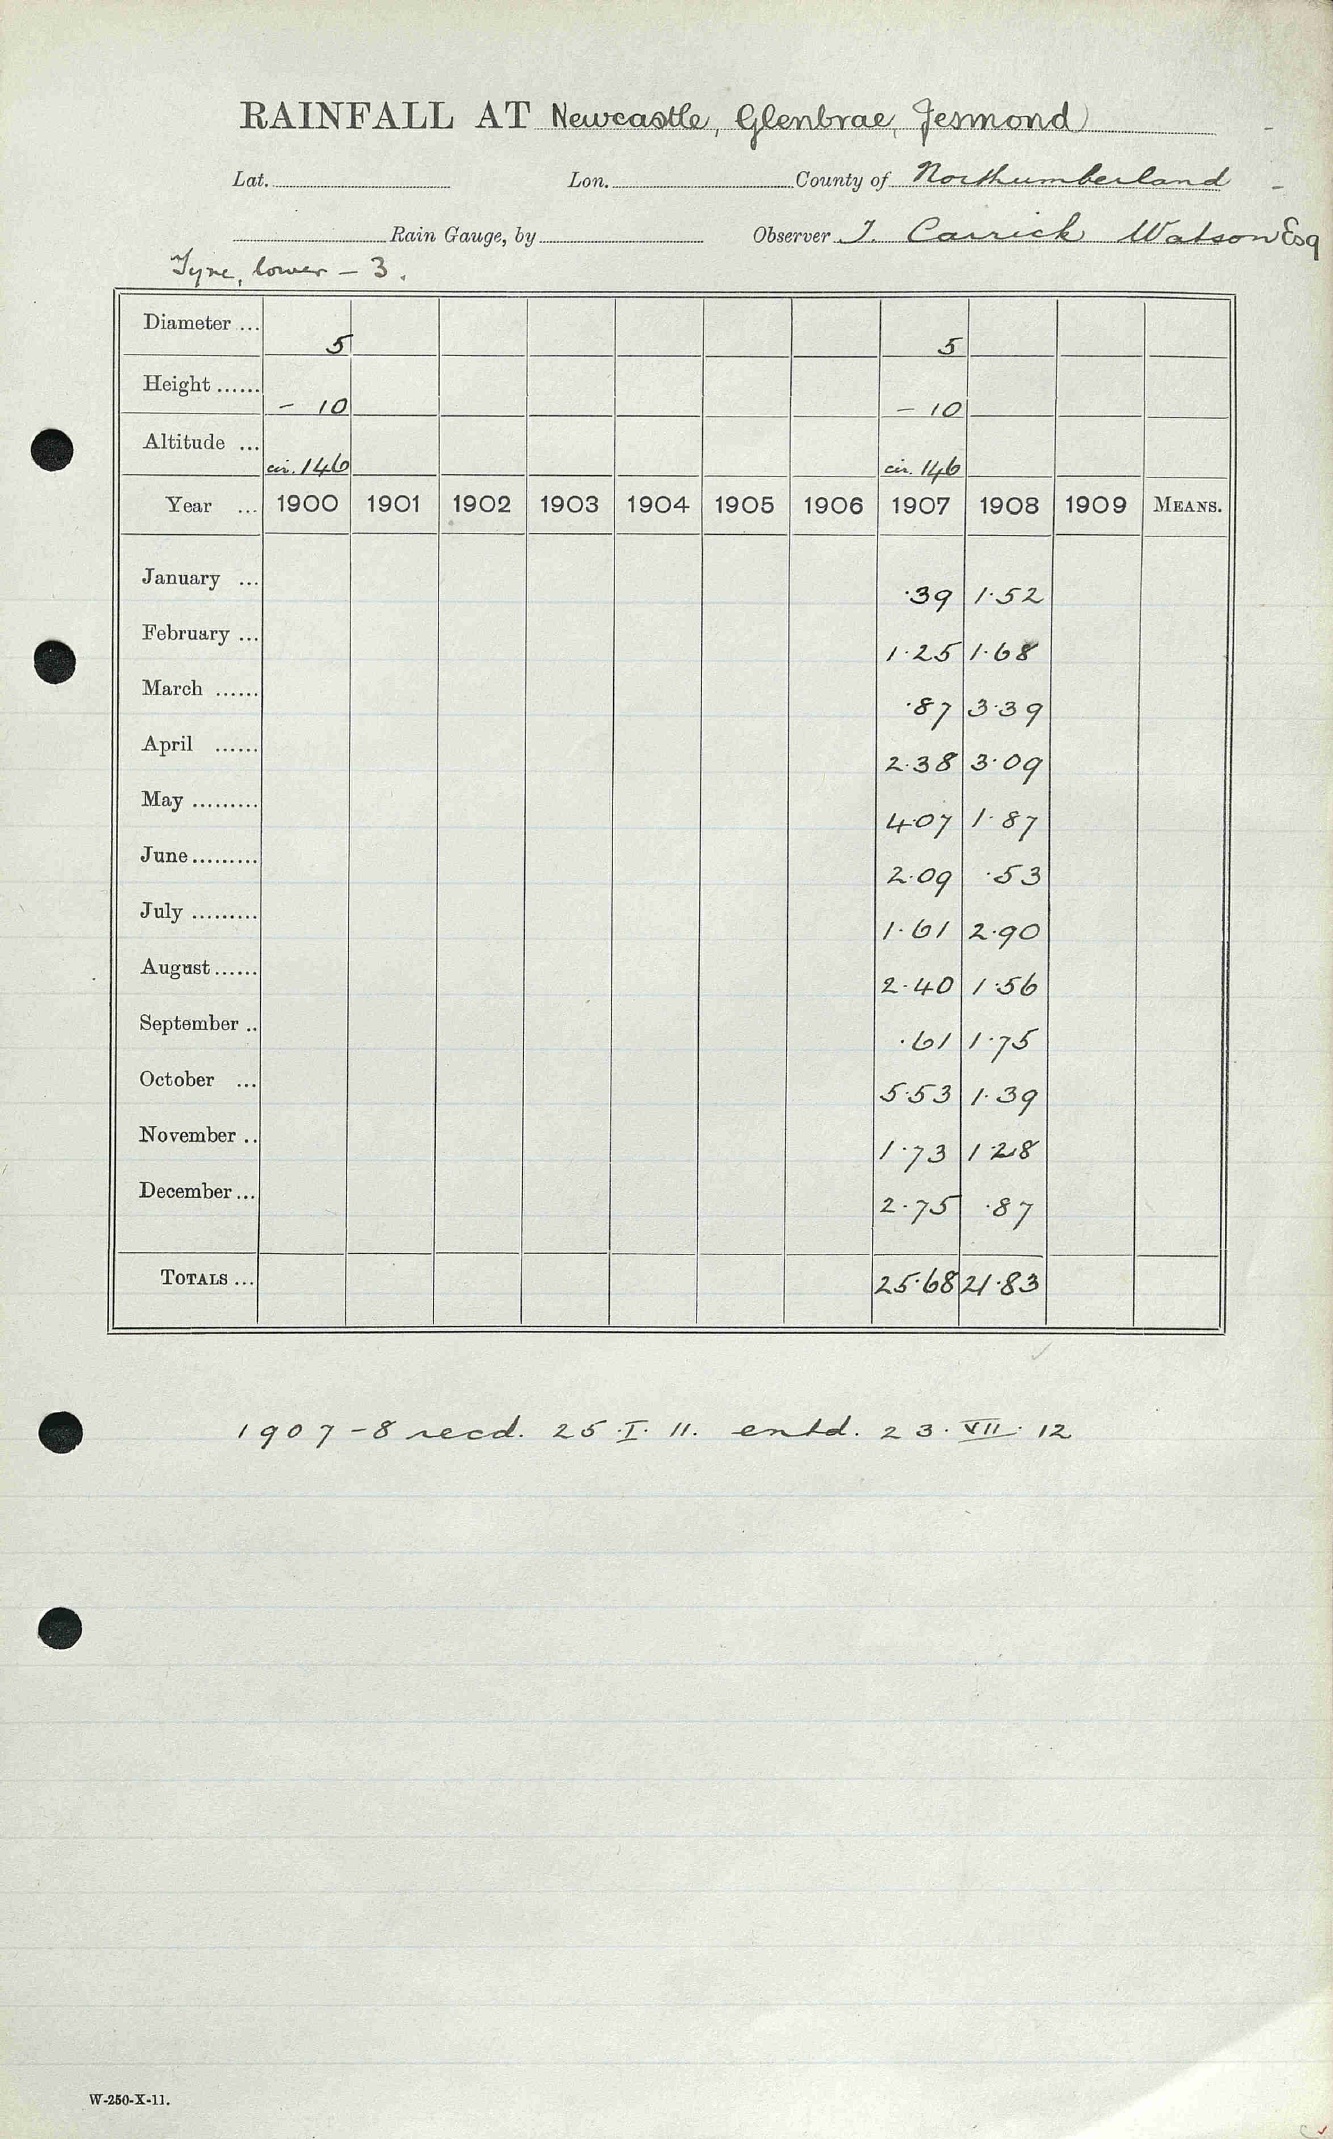 RAINFALL AT Newcastle, Glenbrae, Jesmond
Lat. Lon. County of Northumberland
Rain Gauge, by Observer J. Carrick Watson Esq
Tyne, lower – 3.
Diameter ... 5 5
Height ...... – 10 – 10
Altitude ... cir. 146 cir. 146
Year ... 1900 1901 1902 1903 1904 1905 1906 1907 1908 1909 MEANS.
January ... ·39 1·52
February ... 1·25 1·68
March ...... ·87 3·39
April ...... 2·38 3·09
May ......... 4·07 1·87
June ......... 2·09 ·53
July ......... 1·61 2·90
August ...... 2·40 1·56
September .. ·61 1·75
October ... 5·53 1·39
November .. 1·73 1·28
December ... 2·75 ·87
TOTALS ... 25·68 21·83
1907–8 recd. 25·I·11. entd. 23·VII·12
W-250-X-11.